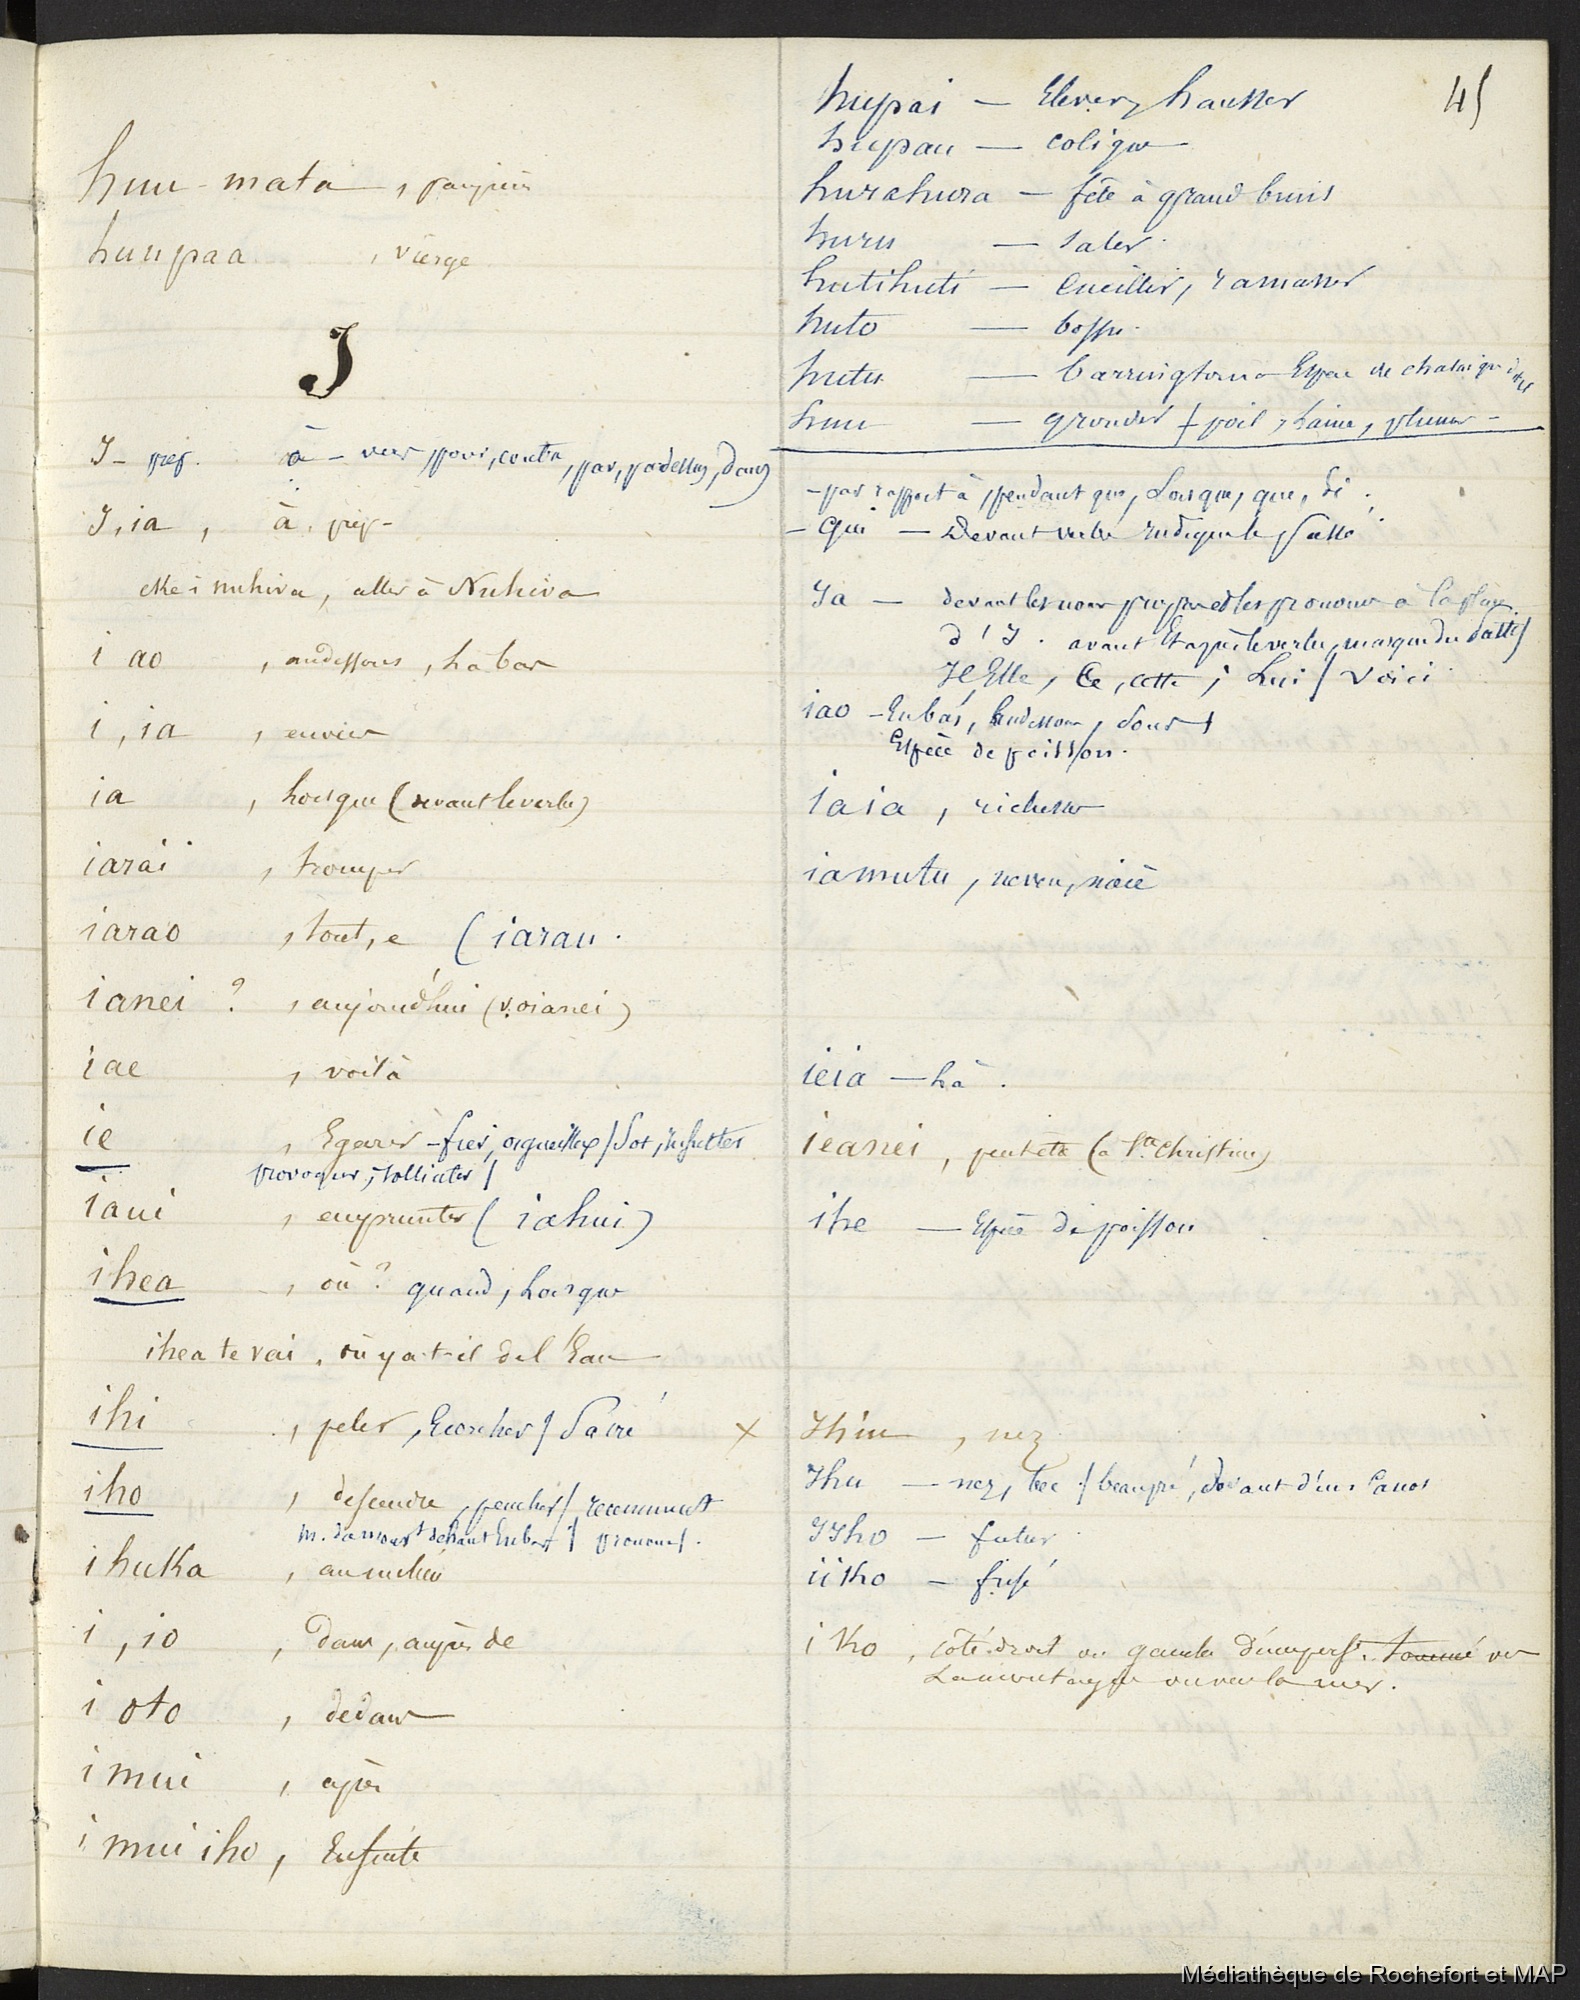 45
huu-mata , paupière
huupaa , vierge
I
I- prép. à - vers, pour, contre, par, par dessus, dans
I, ia , à. prép-
eke i nuhiva, aller à Nuhiva
i ao , audessous, là bas
i, ia , envers
ia , Lorsque (devant le verbe)
iarai , tromper
iarao , tout, e (iarau.
ianei ? , aujourd'hui (v. oianei)
iae , voilà
ie , Egarer - fier, orgueilleux / Sot,
provoquer, solliciter /
iaui , emprunter (iahui)
ihea , où? quand, Lorsque
ihea te vai , où y a-t-il del'Eau
ihi , peler, Ecorcher / Sacré
iho , descendre, pencher / récemment
ihuka , au milieu
i, io , Dans, auprès de
i oto , dedans
i mui , après
i mui iho , Ensuite
hupai — Elever, hausser
hupau — colique
hurahura — fête à grand bruit
huru — saler.
hutihuti — Cueillir, ramasser
huto — bosse.
hutu — barringtonia Espèce de chataigne
huu — gronder / poil, Laine, plume -
- par rapport à, pendant que, Lorsque, que, Si.
- Qui — Devant verbe indique le passé.
Ia — devant les noms propres et les pronoms à la place
d'I. avant Et après le verbe, marque du Passé /
Il, Elle, Ce, cette, Lui / Voici.
iao - En bas, audessous, Sous /
Espèce de poisson.
iaia , richesse
iamutu , neveu, nièce
ieia — Là.
ieanei , peutêtre (à Ste Christine)
ihe — Espèce de poisson
x Ihu , nez
Ihu — nez, bec / beaupré, devant d'une Canot
iiho —
iiko — frisé
iko , côté droit ou gauche d'une pers. tourné vers
La montagne ou vers la mer.
Médiathèque de Rochefort et MAP